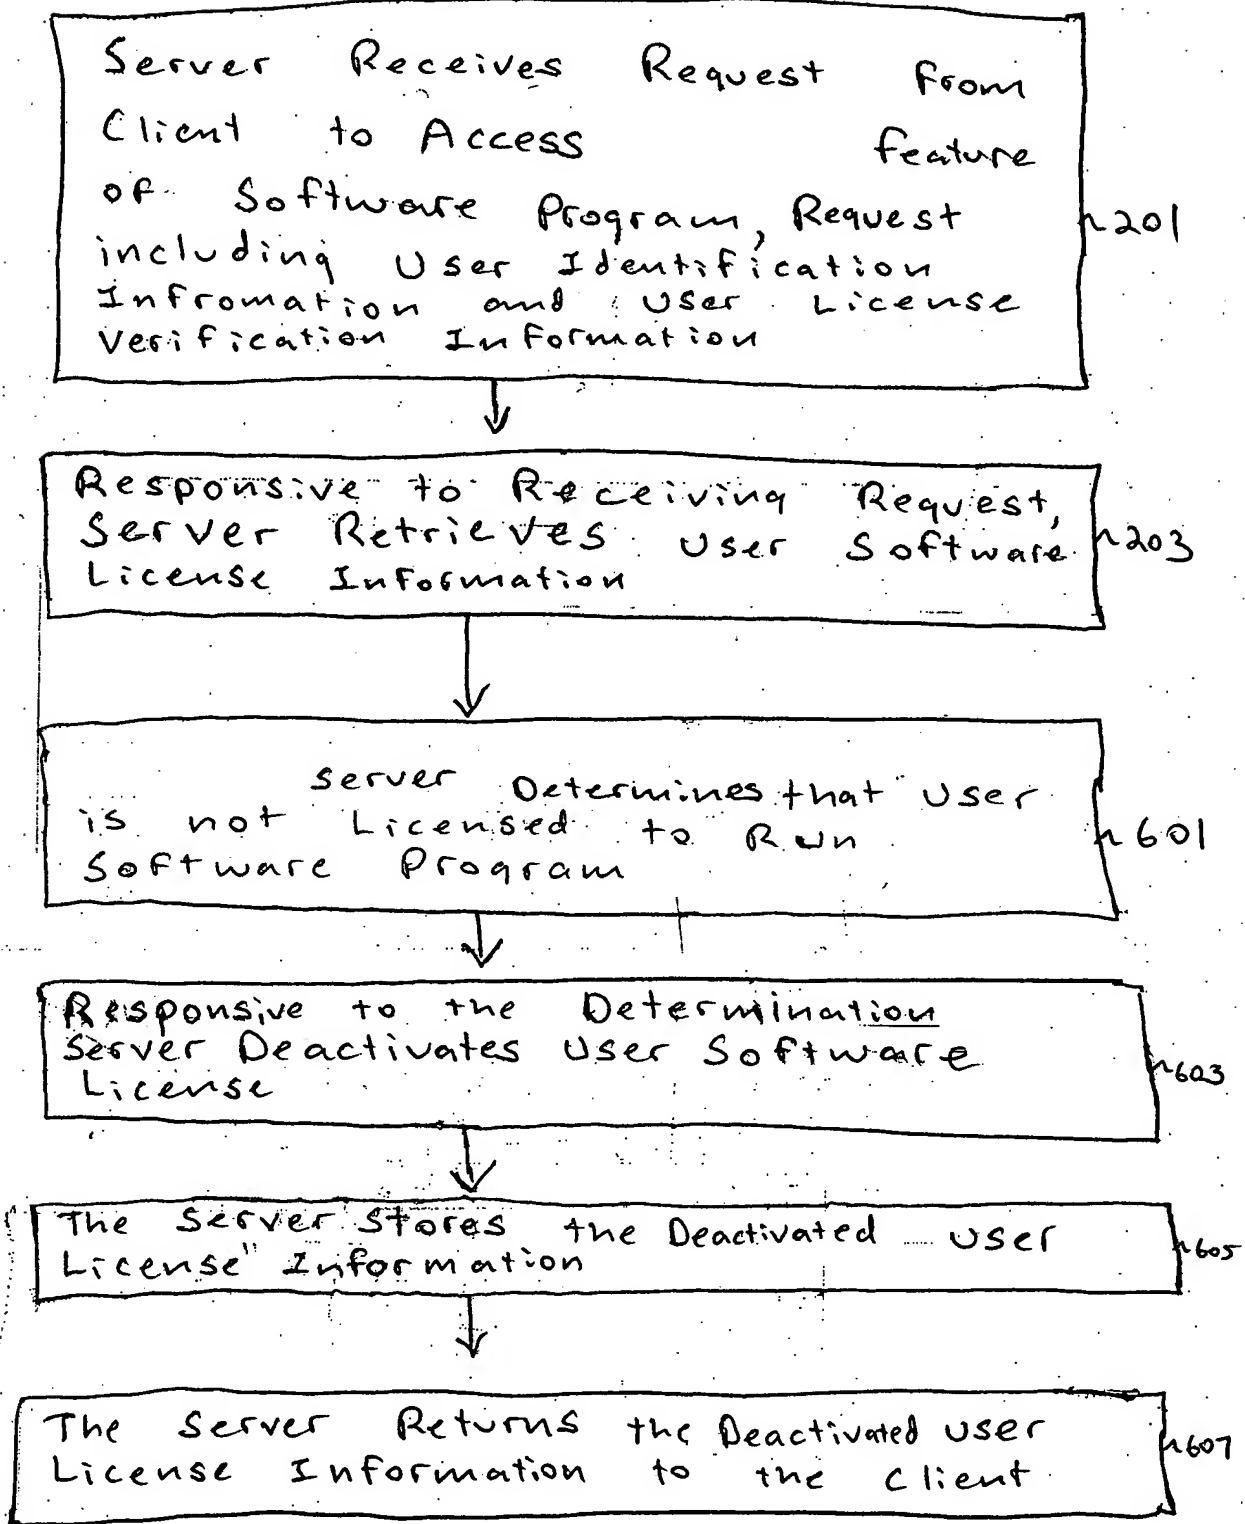 Server Receives Request From
Client to Access feature
of Software Program, Request
including User Identification
Infromation and User License
Verification Information
201
Responsive to Receiving Request,
Server Retrieves User Software
License Information
203
Server Determines that User
is not Licensed to Run
Software Program
601
Responsive to the Determination
Server Deactivates User Software
License
603
The Server Stores the Deactivated User
License Information
605
The Server Returns the Deactivated User
License Information to the Client
607